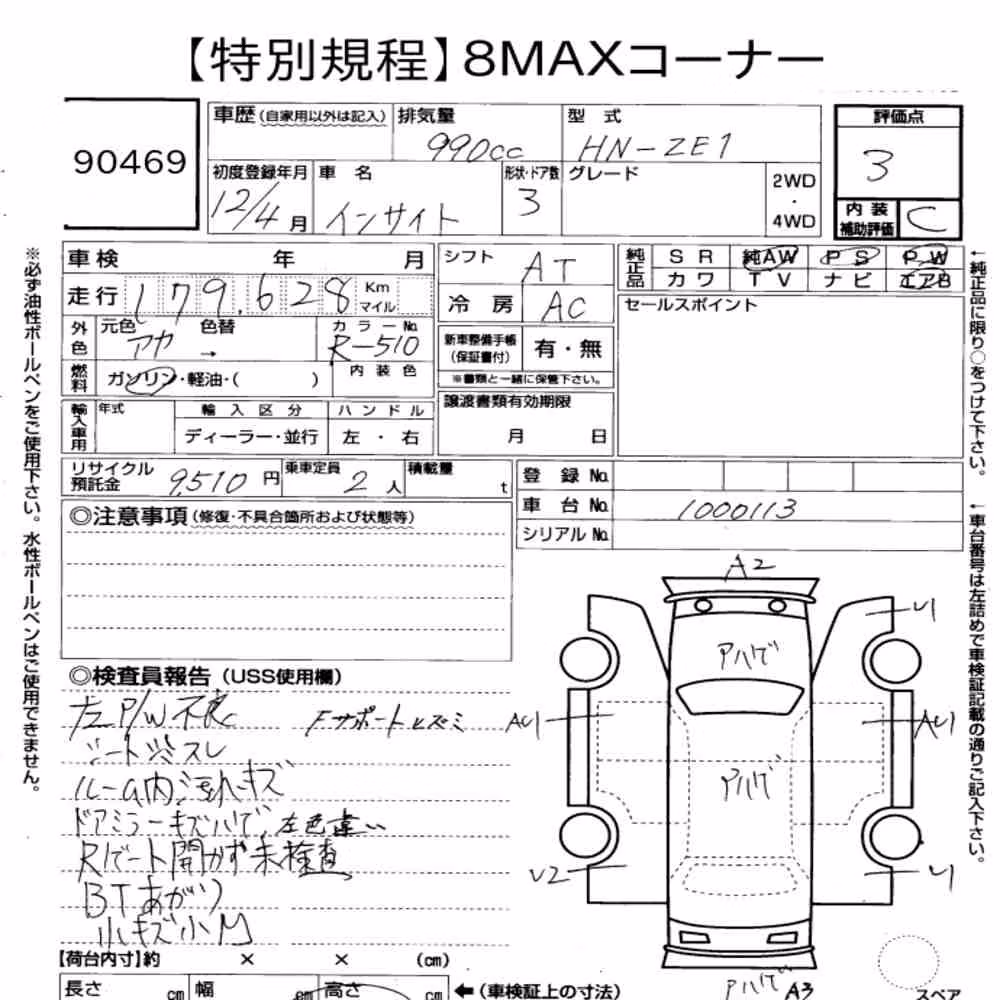 【特別規程】8MAXコーナー
90469
車歴 (自家用以外は記入) 排気量 型式
990cc HN-ZE1
評価点
3
初度登録年月 車名 形状・ドア数 グレード
12/4月 インサイト 3
2WD
・
4WD
内装
補助評価 C
車検 年 月
走行 179,628 Km
マイル
外色 元色 色替 カラーNo.
アカ → R-510
燃料 ガソリン・軽油・( ) 内装色
輸入車用 年式 輸入区分 ハンドル
ディーラー・並行 左・右
シフト AT
冷房 AC
新車整備手帳
(保証書付) 有・無
※書類と一緒に保管下さい。
譲渡書類有効期限
月 日
純正品 SR 純AW PS PW
カワ TV ナビ エアB
セールスポイント
リサイクル
預託金 9,510円 乗車定員 2人 積載量 t
登録No.
車台No. 1000113
シリアルNo.
◎注意事項 (修復・不具合箇所および状態等)
◎検査員報告 (USS使用欄)
左P/W不良 Fサポートヒズミ
シート スレ
ルーム内汚れキズ
ドアミラーキズハゲ、左色違い
Rゲート開かず未検査
BTあがり
小キズ小凹
A2
アハゲ
U1
AU1
AU1
アハゲ
U2
U1
アハゲ A3
【荷台内寸】約 × × (cm)
長さ cm 幅 cm 高さ cm ←(車検証上の寸法)
スペア
※必ず油性ボールペンをご使用下さい。水性ボールペンはご使用できません。
←純正品に限り○をつけて下さい。
←車台番号は左詰めで車検証記載の通りご記入下さい。